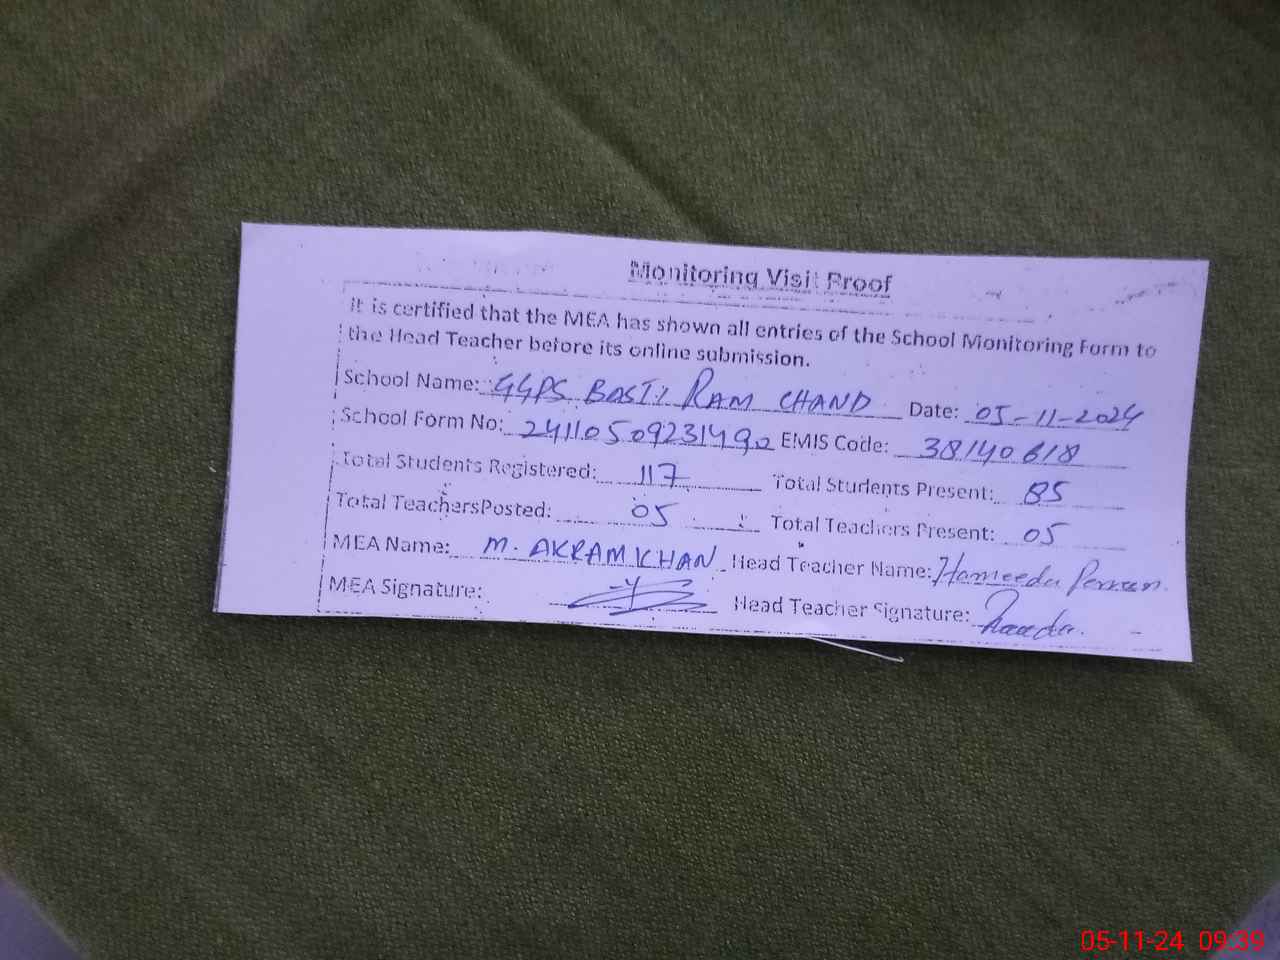 Monitoring Visit Proof
It is certified that the MEA has shown all entries of the School Monitoring Form to
the Head Teacher before its online submission.
School Name: GGPS BASTI RAM CHAND Date: 05-11-2024
School Form No: 24110509231490 EMIS Code: 38140618
Total Students Registered: 117 Total Students Present: 85
Total TeachersPosted: 05 Total Teachers Present: 05
MEA Name: M. AKRAM KHAN Head Teacher Name: Hameeda
MEA Signature: Head Teacher Signature:
05-11-24 09:39